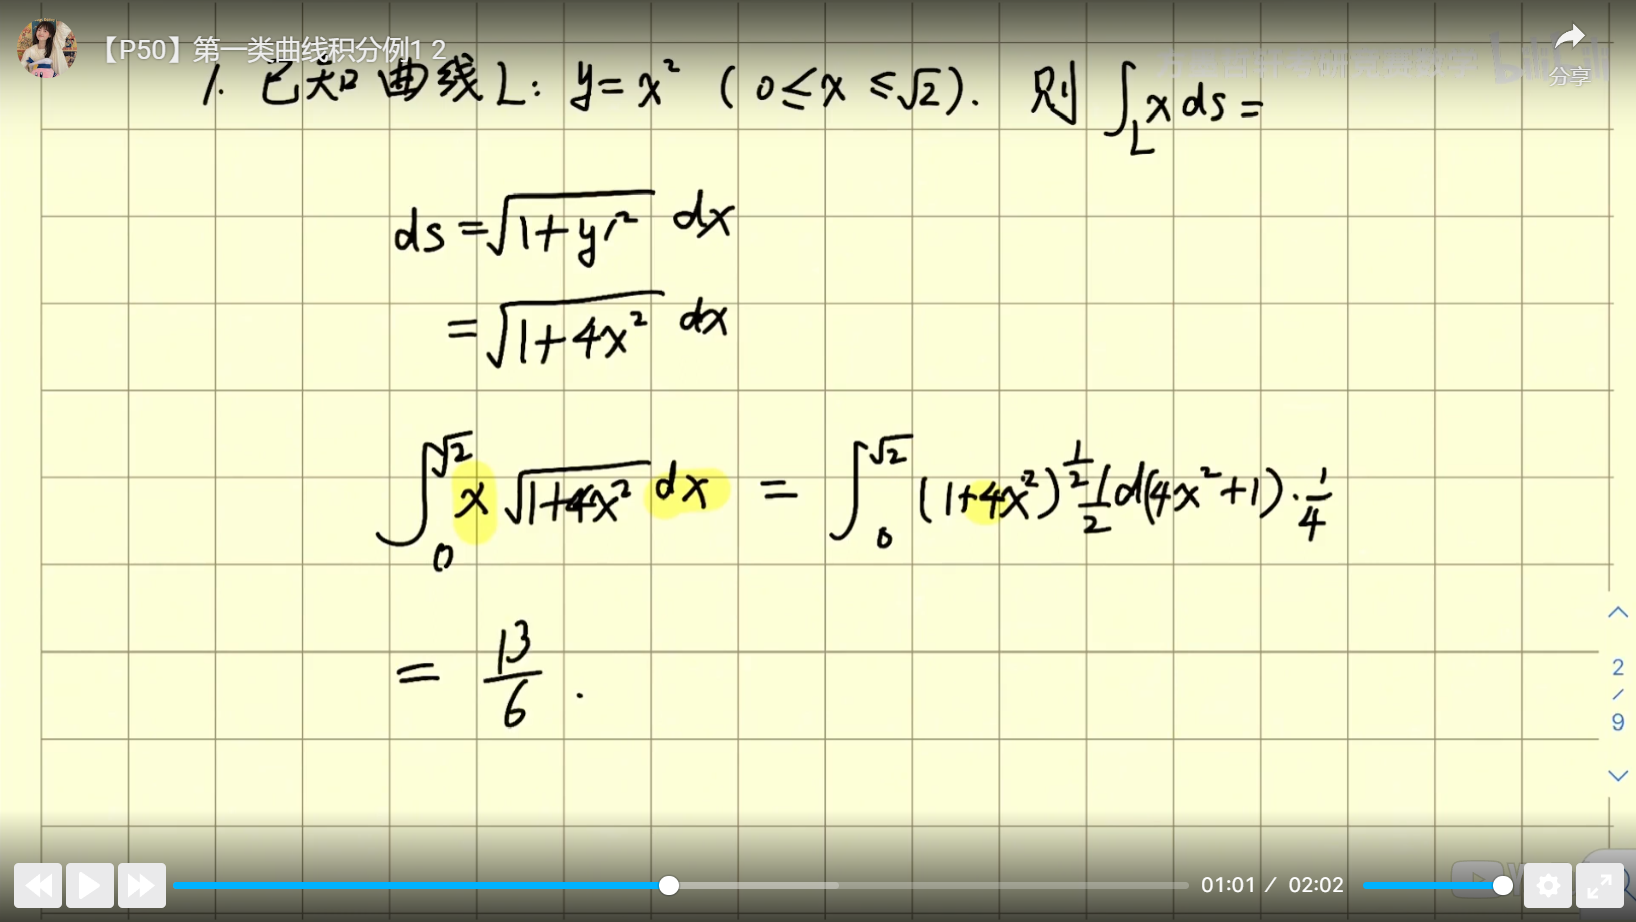 【P50】第一类曲线积分例1 2
分享
1. 已知曲线 L: y=x² (0≤x≤√2). 则 ∫_L x ds =
ds = √(1+y'²) dx
= √(1+4x²) dx
∫₀^√2 x √(1+4x²) dx = ∫₀^√2 (1+4x²)^½ ½ d(4x²+1)·¼
= 13/6 .
2
/
9
01:01 / 02:02